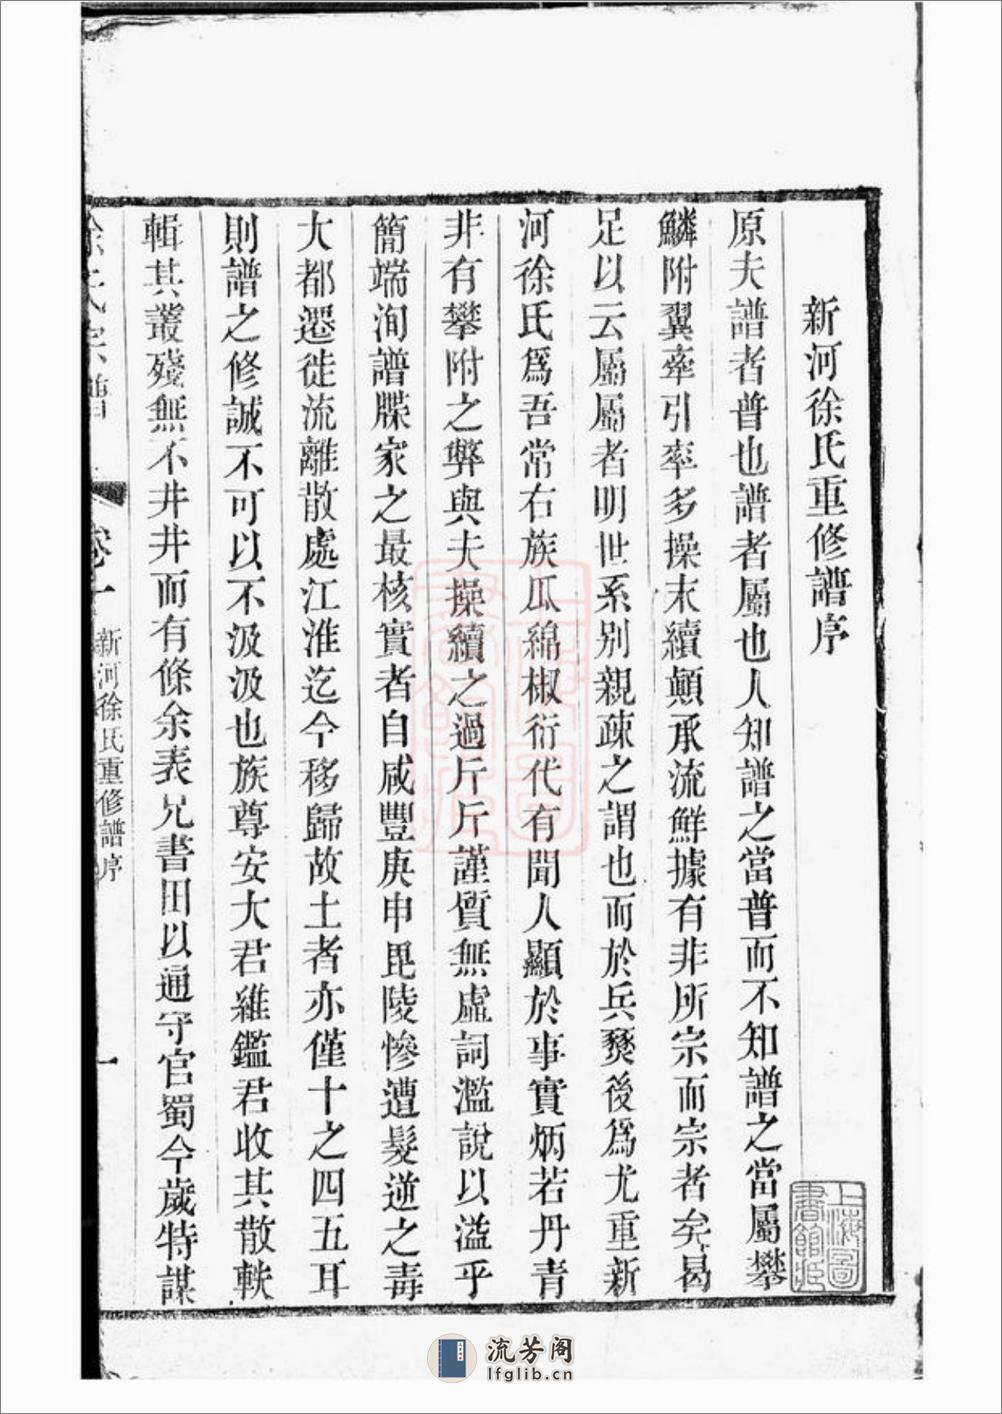 新河徐氏重修譜序
原夫譜者普也譜者屬也人知譜之當普而不知譜之當屬攀
鱗附翼牽引率多操末續顛承流鮮據有非所宗而宗者矣曷
足以云屬屬者明世系别親疎之謂也而於兵燹後爲尤重新
河徐氏爲吾常右族瓜綿椒衍代有聞人顯於事實炳若丹青
非有攀附之弊與夫操續之過斤斤謹質無虛詞濫說以溢乎
簡端洵譜牒家之最核實者自咸豐庚申毘陵慘遭髮逆之毒
大都遷徙流離散處江淮迄今移歸故土者亦僅十之四五耳
則譜之修誠不可以不汲汲也族尊安大君維鑑君收其散軼
輯其叢殘無不井井而有條余表兄書田以通守官蜀今歲特謀
徐氏宗譜 卷十 新河徐氏重修譜序 一
上海圖書館藏
上海圖書館藏
流芳阁
lfglib.cn